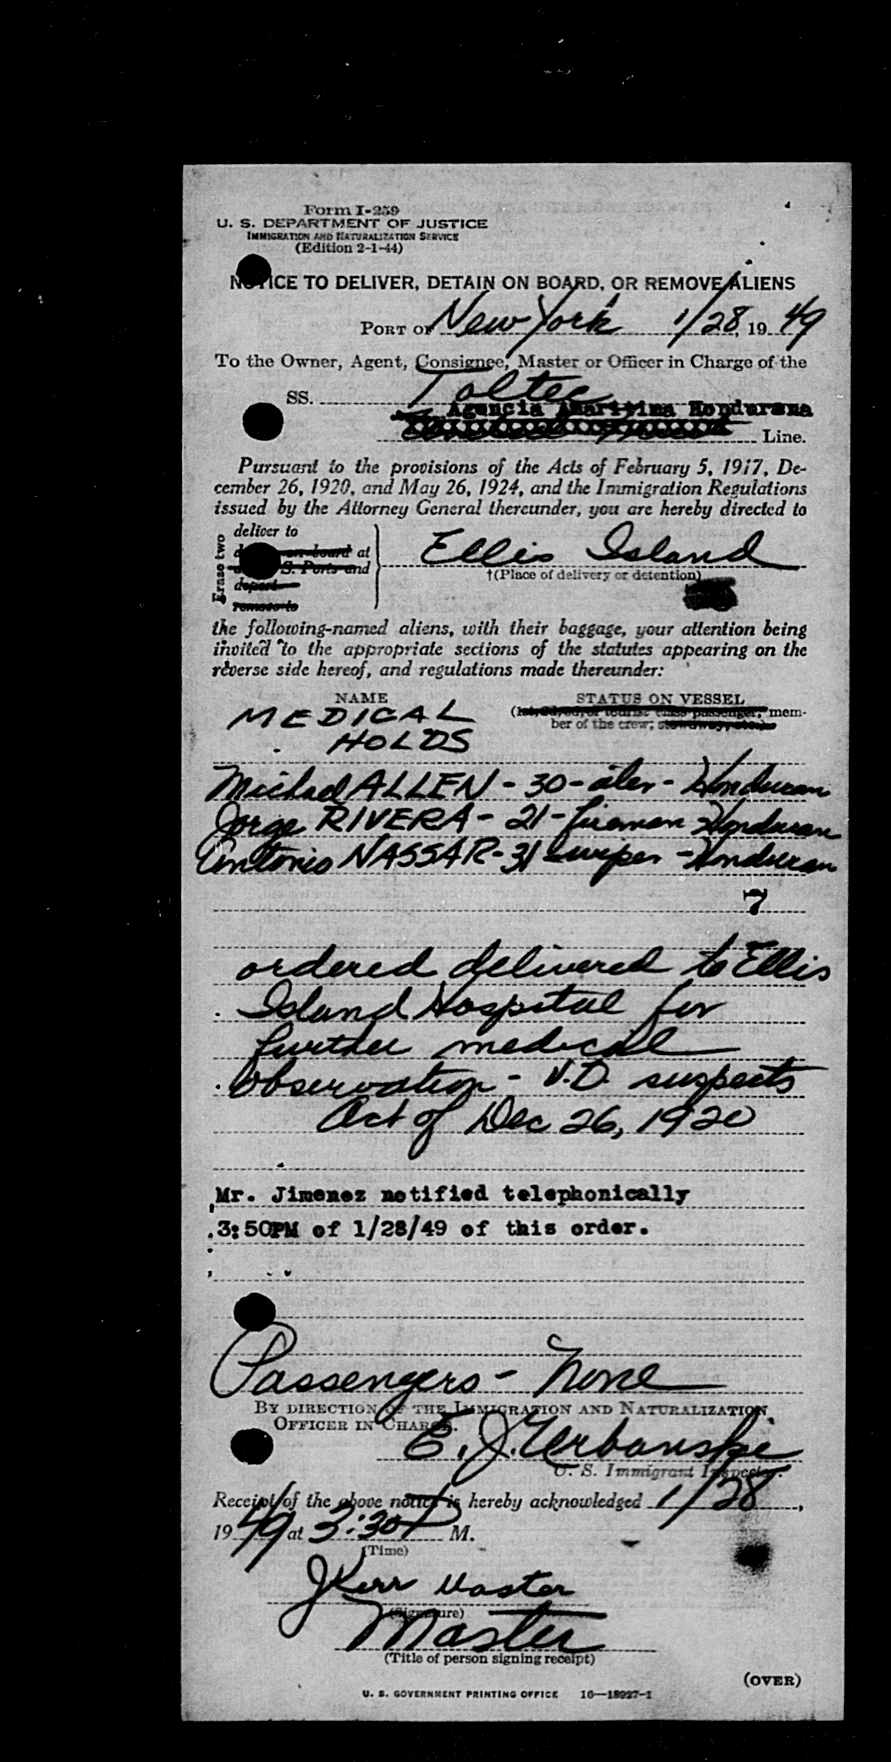 Form I-259
U. S. DEPARTMENT OF JUSTICE
IMMIGRATION AND NATURALIZATION SERVICE
(Edition 2-1-44)
NOTICE TO DELIVER, DETAIN ON BOARD, OR REMOVE ALIENS
PORT OF New York 1/28, 1949
To the Owner, Agent, Consignee, Master or Officer in Charge of the
SS. Toltec
Agencia Maritima Hondurena
Line.
Pursuant to the provisions of the Acts of February 5, 1917, De-
cember 26, 1920, and May 26, 1924, and the Immigration Regulations
issued by the Attorney General thereunder, you are hereby directed to
Erase two
deliver to
on board at
S. Ports and
depart
remove to
Ellis Island
†(Place of delivery or detention)
the following-named aliens, with their baggage, your attention being
invited to the appropriate sections of the statutes appearing on the
reverse side hereof, and regulations made thereunder:
NAME STATUS ON VESSEL
(1st, 2d, 3d, or tourist class passenger; mem-
ber of the crew; stowaway, etc.)
MEDICAL
HOLDS
Michael ALLEN - 30 - oiler - Honduran
Jorge RIVERA - 21 - fireman Honduran
Antonio NASSAR - 31 wiper - Honduran
7
ordered delivered to Ellis
Island Hospital for
further medical
observation - V.D. suspects
Act of Dec 26, 1920
Mr. Jimenez notified telephonically
3:50PM of 1/28/49 of this order.
Passengers - None
BY DIRECTION OF THE IMMIGRATION AND NATURALIZATION
OFFICER IN CHARGE.
E. J. Urbanski
U. S. Immigrant Inspector.
Receipt of the above notice is hereby acknowledged 1/28,
1949 at 3:30 P M.
(Time)
JKerr Master
(Signature)
Master
(Title of person signing receipt)
(OVER)
U. S. GOVERNMENT PRINTING OFFICE 16—18927-1